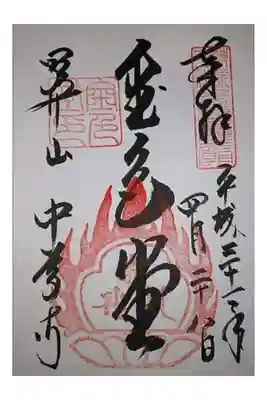 奉拝
平成三十一年
四月二十八日
金色堂
関山 中尊寺